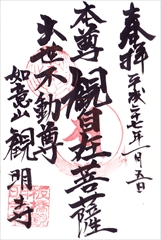 奉拝 平成二十七年一月五日
本尊
観自在菩薩
出世不動尊
如意山 観明寺